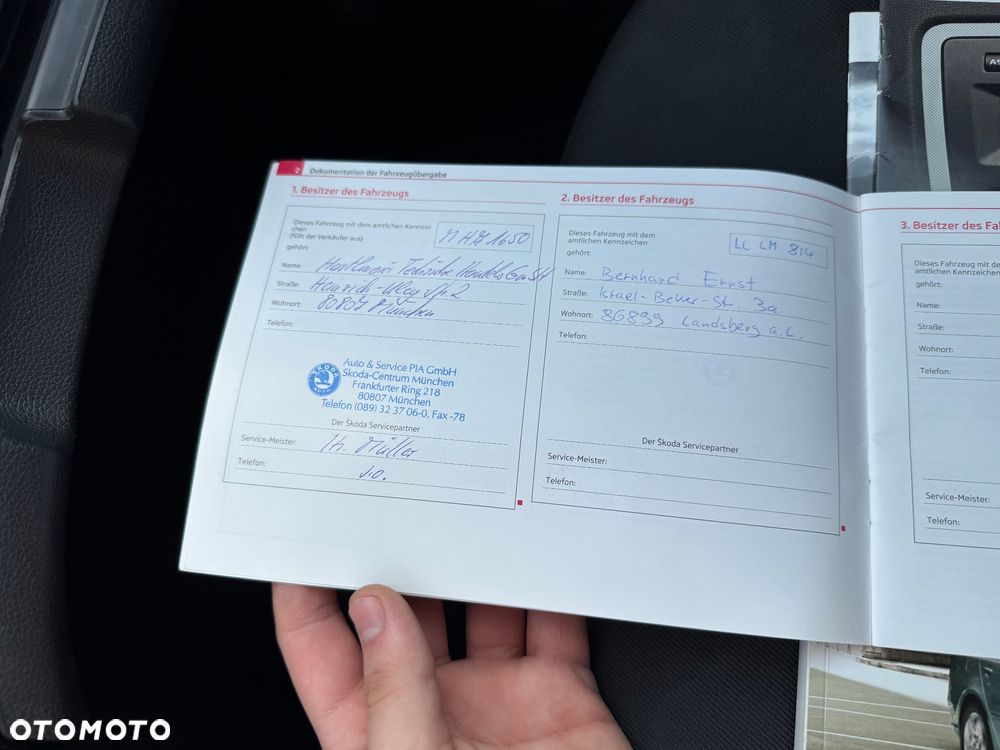 2 Dokumentation der Fahrzeugübergabe
1. Besitzer des Fahrzeugs
Dieses Fahrzeug mit dem amtlichen Kennzei-
chen
(füllt der Verkäufer aus)
gehört:
Name: Technische Handels GmbH
Straße: Str. 2
Wohnort: 80807 München
Telefon:
ŠKODA
AUTO
Auto & Service PIA GmbH
Skoda-Centrum München
Frankfurter Ring 218
80807 München
Telefon (089) 32 37 06-0, Fax -78
Der Škoda Servicepartner
Service-Meister: Müller
Telefon:
2. Besitzer des Fahrzeugs
Dieses Fahrzeug mit dem
amtlichen Kennzeichen LL LM 814
gehört:
Name: Bernhard Ernst
Straße: Israel-Beker-St. 3a
Wohnort: 86899 Landsberg a.L.
Telefon:
Der Škoda Servicepartner
Service-Meister:
Telefon:
3. Besitzer des
Dieses Fahrzeug mit
amtlichen Kennzeichen
gehört:
Name:
Straße:
Wohnort:
Telefon:
Service-Meister:
Telefon:
OTOMOTO